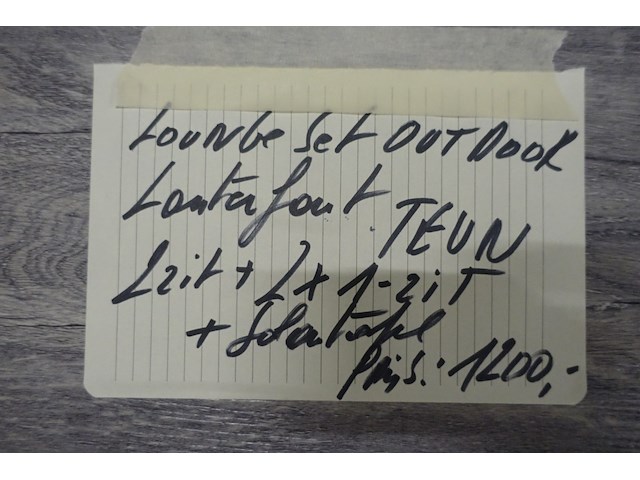 LOUNGE Set OUTDOOR
Lanterfant TEUN
2zit + 2x 1-ziT
+ Salontafel
Prijs: 1200,-